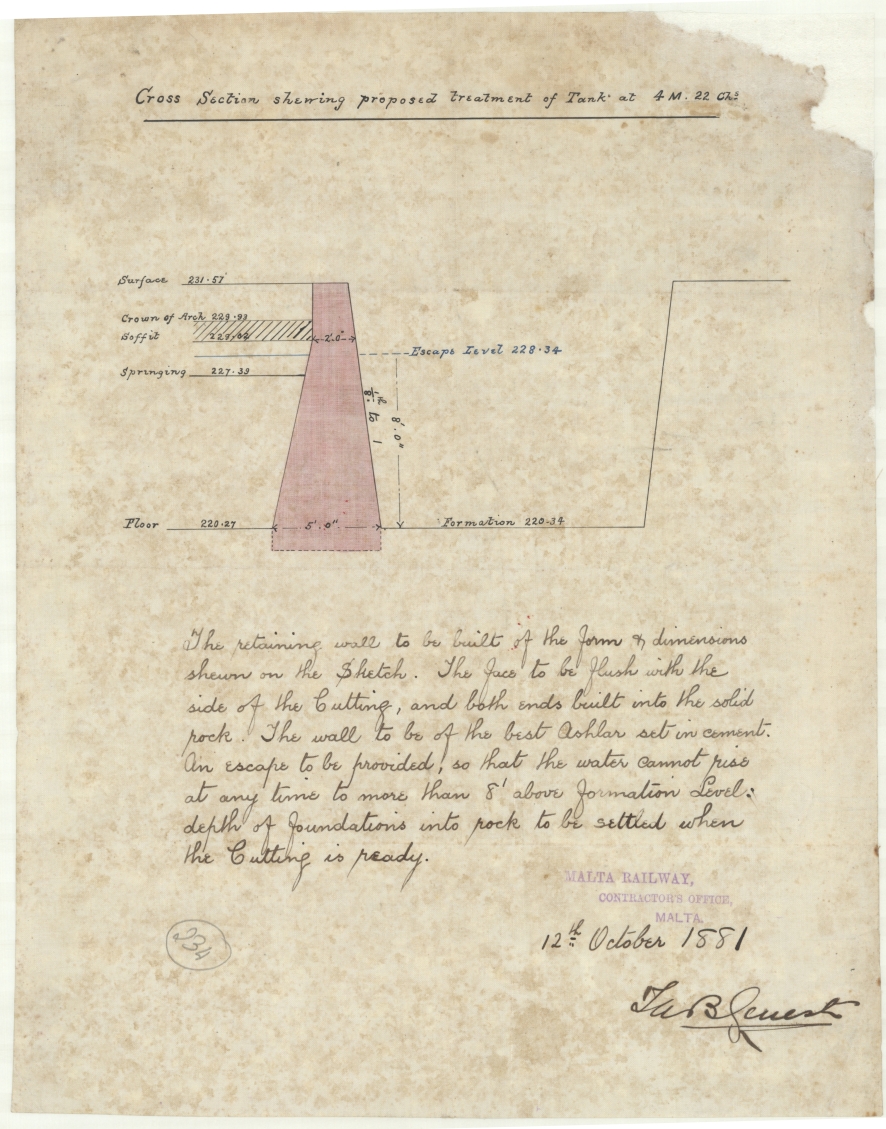 Cross Section shewing proposed treatment of Tank at 4 M. 22 Chs
Surface 231.57
Crown of Arch 229.93
Soffit
2'.0"
Escape Level 228.34
Springing 227.39
1 to
8'.0"
Floor 220.27
5'.0"
Formation 220.34
The retaining wall to be built of the form & dimensions
shewn on the Sketch. The face to be flush with the
side of the Cutting, and both ends built into the solid
rock. The wall to be of the best Ashlar set in cement.
An escape to be provided, so that the water cannot rise
at any time to more than 8' above formation Level:
depth of foundations into rock to be settled when
the Cutting is ready.
MALTA RAILWAY,
CONTRACTOR'S OFFICE,
MALTA.
12th October 1881
234